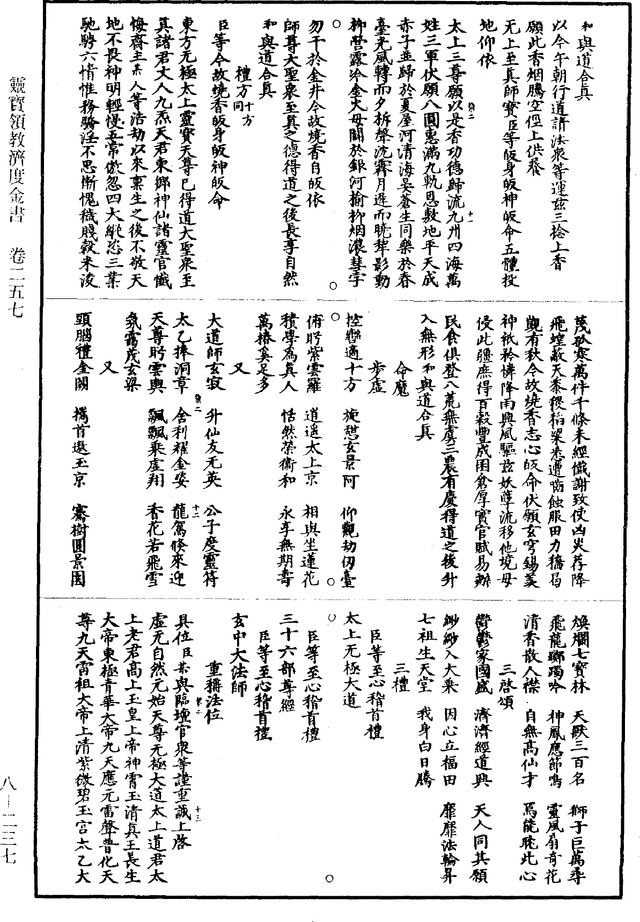 和與道合真
以今午朝行道請法衆等運茲三捻上香
願此香烟騰空徑上供養
无上至真師寶臣等皈身皈神皈命五體投
地仰依
太上三尊願以是香功德歸流九州四海萬
姓三軍伏願八圓惠滿九軌恩敷地平天成
赤子並歸於夏屋河清海晏蒼生同樂於春
臺光風轉而夕柝聲沈霽月遲而晩
柳營露冷金大母閒於銀河榆柳烟濃彗孛
勿干於金井今故燒香自皈依
師尊大聖衆至真之德得道之後長享自然
和與道合真
禮方十方同
臣等今故燒香皈身皈神皈命
東方无極太上靈寶天尊已得道大聖衆至
真諸君丈人九炁天君東鄉神仙諸靈官懺
悔齋主某人等浩劫以來稟生之後不敬天
地不畏神明輕慢五常傲忽四大縱恣三業
馳騁六情惟務驕淫不思慚愧穢賤穀米凌
茂砂寒萬件千條未經懺謝致使凶災荐降
飛蝗蔽天黍稷稻粱悉遭嚙蝕服田力穡曷
觀有秋今故燒香志心皈命伏願玄穹錫羨
神祇矜憐降雨興風驅茲妖孽流移他境毋
侵此疆庶得百穀豐成囷倉厚實官賦易辦
民食俱登八荒無虞三農有慶得道之後升
入無形和與道合真
命魔
步虛
控轡適十方　旋憩玄景阿　仰觀劫仞臺
俯眄紫雲羅　逍遥太上京　相與坐蓮花
積學爲真人　恬然榮衛和　永享無期壽
萬椿奚足多
又
大道師玄寂　升仙友无英　公子度靈符
太乙捧洞章　舍利耀金姿　龍駕倏來迎
天尊眄雲輿　飄飄乘虛翔　香花若飛雪
氛靄茂玄梁
又
頭腦禮金闕　攜首遨玉京　騫樹圓景園
煥爛七寶林　天獸三百名　獅子巨萬尋
飛龍躑躅吟　神鳳應節鳴　靈風扇奇花
清香散人襟　自無高仙才　焉能眈此心
三啓頌
鬱鬱家國盛　濟濟經道興　天人同其願
縹緲入大乘　因心立福田　靡靡法輪昇
七祖生天堂　我身白日騰
三禮
臣等至心稽首禮
太上无極大道
臣等至心稽首禮
三十六部尊經
臣等至心稽首禮
玄中大法師
重稱法位
具位臣某與臨壇官衆等謹重誠上啓
虛无自然元始天尊无極大道太上道君太
上老君高上玉皇上帝神霄玉清真王長生
大帝東極青華大帝九天應元雷聲普化天
尊九天雷祖大帝上清紫微碧玉宫太乙大
靈寶領教濟度金書　卷二五七
八—二三七